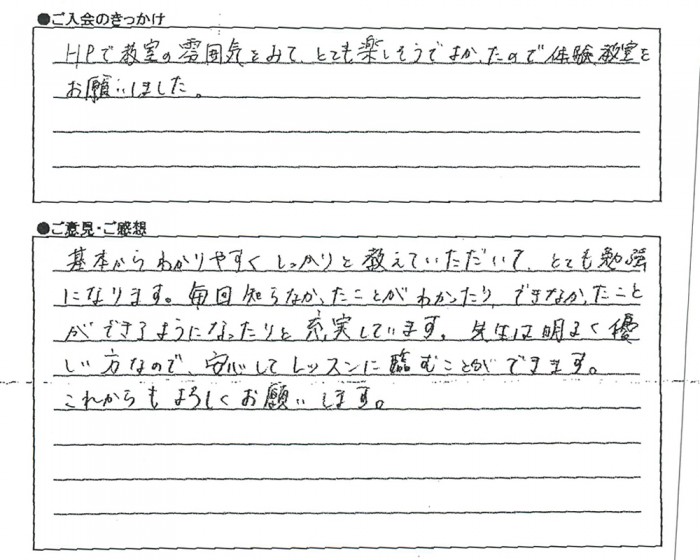 ●ご入会のきっかけ
HPで教室の雰囲気をみて、とても楽しそうでよかったので体験教室を
お願いしました。
●ご意見・ご感想
基本からわかりやすくしっかりと教えていただいて、とても勉強
になります。毎回知らなかったことがわかったり、できなかったこと
ができるようになったりと充実しています。先生は明るく優
しい方なので、安心してレッスンに臨むことができます。
これからもよろしくお願いします。